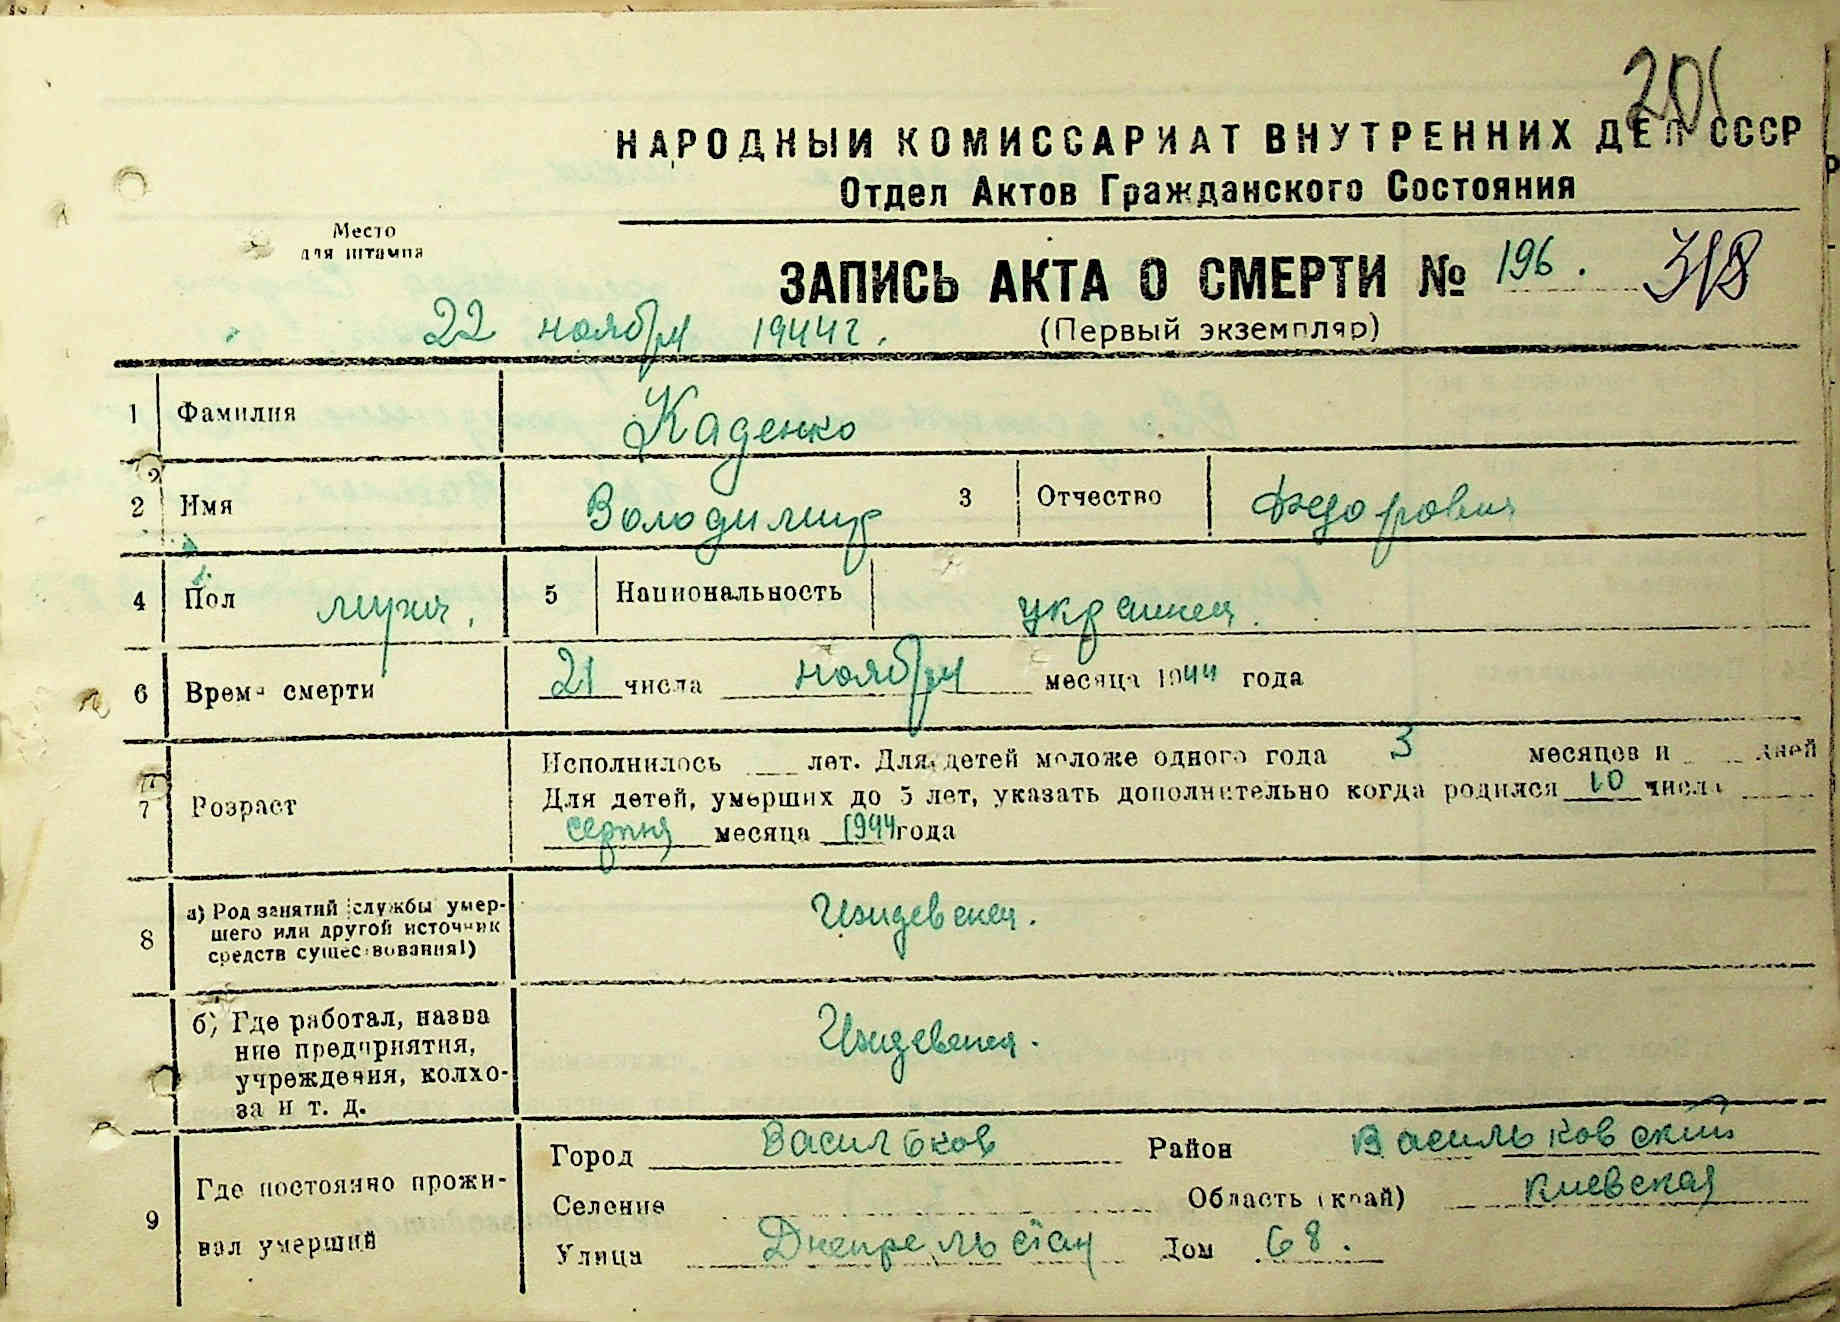 201
НАРОДНЫЙ КОМИССАРИАТ ВНУТРЕННИХ ДЕЛ СССР
Отдел Актов Гражданского Состояния
Место
для штампа
ЗАПИСЬ АКТА О СМЕРТИ № 196. 318
22 ноября 1944 г.
(Первый экземпляр)
1 Фамилия Каденко
2 Имя Володимир 3 Отчество Федорович
4 Пол мужч. 5 Национальность украинец.
6 Время смерти 21 числа ноября месяца 1944 года
7 Возраст Исполнилось лет. Для детей моложе одного года 3 месяцов и дней
Для детей, умерших до 5 лет, указать дополнительно когда родился 10 числа
серпня месяца 1944 года
8 а) Род занятий службы умер-
шего или другой источник
средств существования1)
Иждевенец.
б) Где работал, назва
ние предприятия,
учреждения, колхо-
за и т. д.
Иждевенец.
9 Где постоянно прожи-
вал умерший
Город Васильков Район Васильковский
Селение Область (край) Киевская
Улица Дом 68.